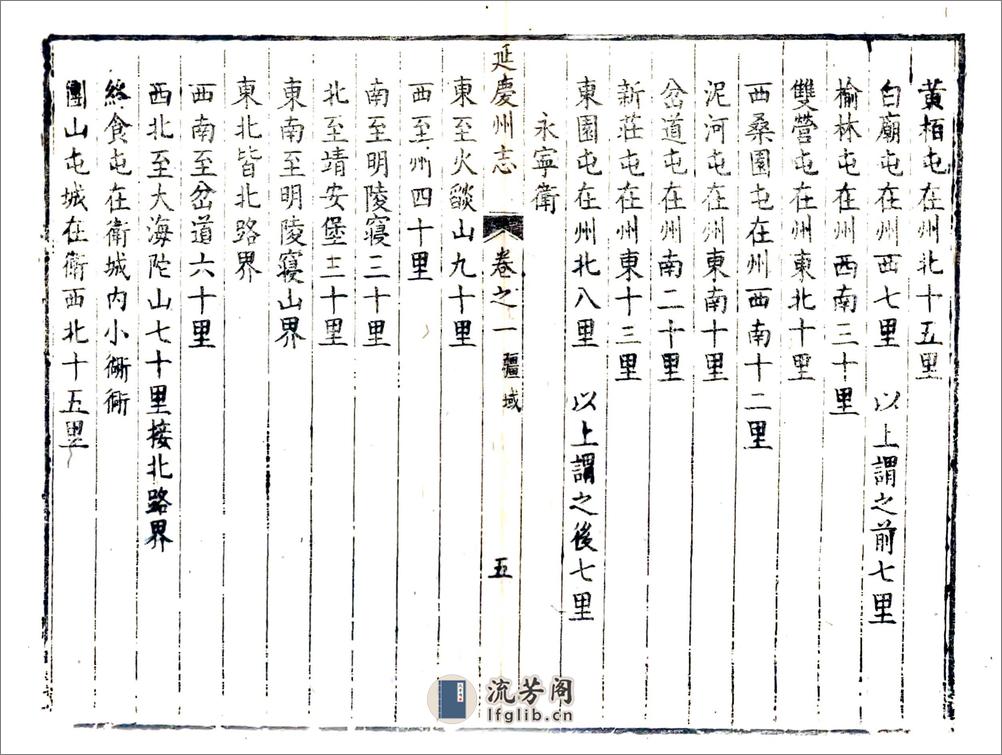 黃栢屯在州北十五里
白廟屯在州西七里　以上謂之前七里
榆林屯在州西南三十里
雙營屯在州東北十里
西桑園屯在州西南十二里
泥河屯在州東南十里
岔道屯在州南二十里
新莊屯在州東十三里
東園屯在州北八里　以上謂之後七里
永寧衛
延慶州志
卷之一
疆域
五
東至火燄山九十里
西至州四十里
南至明陵寢三十里
北至靖安堡三十里
東南至明陵寢山界
東北皆北路界
西南至岔道六十里
西北至大海陀山七十里接北路界
終食屯在衛城內小衚衕
團山屯城在衛西北十五里
流芳阁
lfglib.cn